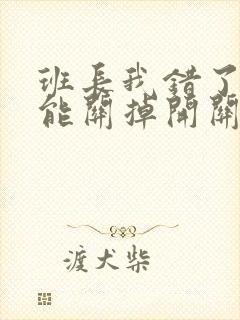 班長我錯了
能關掉開關
渡犬柴